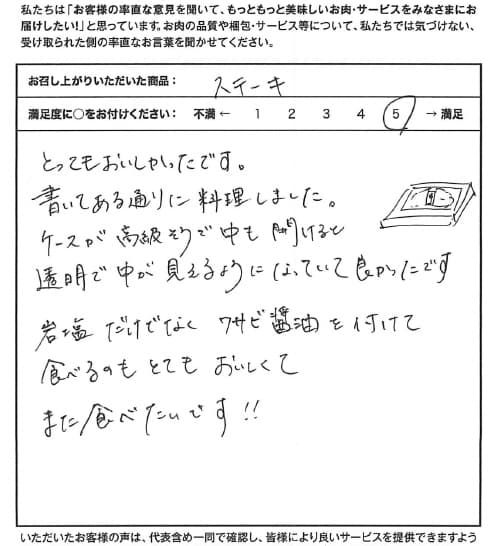 私たちは「お客様の率直な意見を聞いて、もっともっと美味しいお肉・サービスをみなさまにお
届けしたい!」と思っています。お肉の品質や梱包・サービス等について、私たちでは気づけない、
受け取られた側の率直なお言葉を聞かせてください。
お召し上がりいただいた商品： ステーキ
満足度に○をお付けください： 不満 ← 1 2 3 4 5 → 満足
とってもおいしかったです。
書いてある通りに料理しました。
ケースが高級そうで中も開けると
透明で中が見えるようになっていて良かったです
岩塩だけでなくワサビ醤油を付けて
食べるのもとてもおいしくて
また食べたいです!!
いただいたお客様の声は、代表含め一同で確認し、皆様により良いサービスを提供できますよう